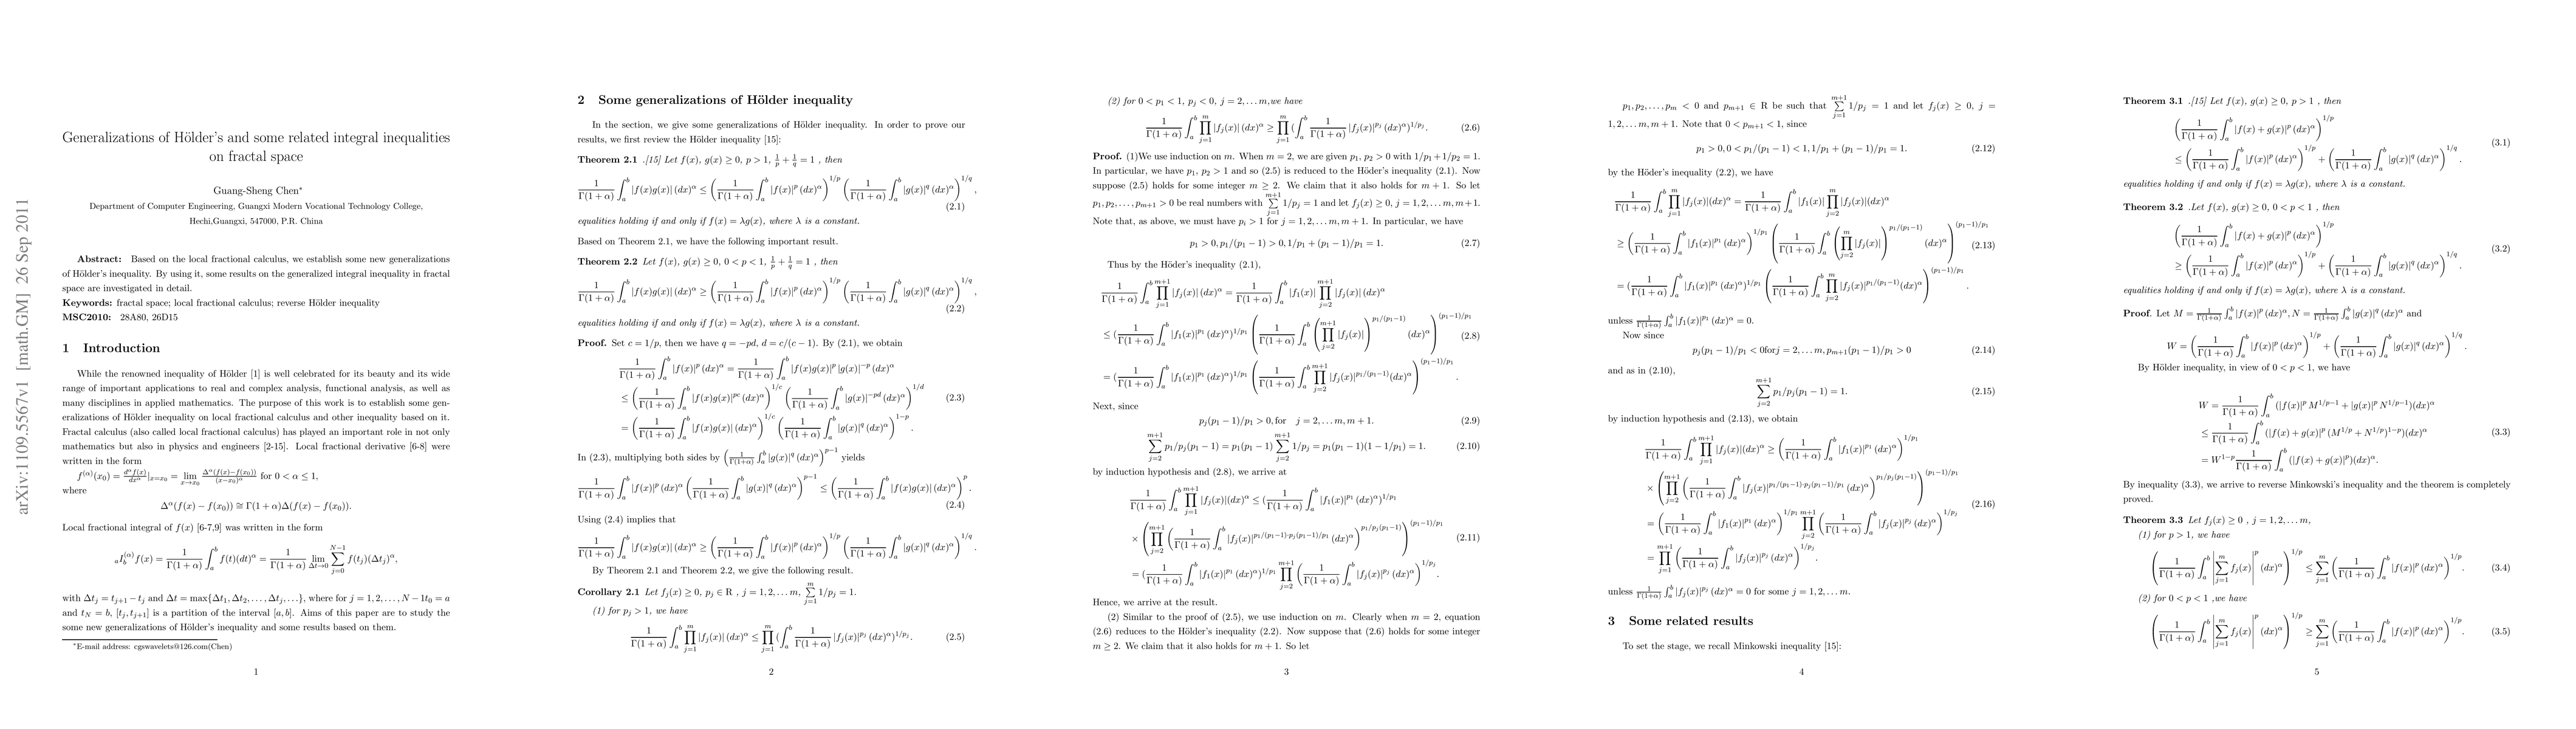 arXiv:1109.5567v1 [math.GM] 26 Sep 2011
Generalizations of Hölder's and some related integral inequalities
on fractal space
Guang-Sheng Chen*
Department of Computer Engineering, Guangxi Modern Vocational Technology College,
Hechi,Guangxi, 547000, P.R. China
Abstract: Based on the local fractional calculus, we establish some new generalizations
of Hölder's inequality. By using it, some results on the generalized integral inequality in fractal
space are investigated in detail.
Keywords: fractal space; local fractional calculus; reverse Hölder inequality
MSC2010: 28A80, 26D15
1 Introduction
While the renowned inequality of Hölder [1] is well celebrated for its beauty and its wide
range of important applications to real and complex analysis, functional analysis, as well as
many disciplines in applied mathematics. The purpose of this work is to establish some gen-
eralizations of Hölder inequality on local fractional calculus and other inequality based on it.
Fractal calculus (also called local fractional calculus) has played an important role in not only
mathematics but also in physics and engineers [2-15]. Local fractional derivative [6-8] were
written in the form
f^{(α)}(x_0) = \frac{d^α f(x)}{dx^α}|_{x=x_0} = \lim_{x→x_0} \frac{Δ^α(f(x)−f(x_0))}{(x−x_0)^α} for 0 < α ≤ 1,
where
Δ^α(f(x) − f(x_0)) ≅ Γ(1 + α)Δ(f(x) − f(x_0)).
Local fractional integral of f(x) [6-7,9] was written in the form
_aI_b^{(α)} f(x) = \frac{1}{Γ(1+α)} ∫_a^b f(t)(dt)^α = \frac{1}{Γ(1+α)} \lim_{Δt→0} ∑_{j=0}^{N−1} f(t_j)(Δt_j)^α,
with Δt_j = t_{j+1} − t_j and Δt = max{Δt_1, Δt_2, . . . , Δt_j, . . .}, where for j = 1, 2, . . . , N − 1t_0 = a
and t_N = b, [t_j, t_{j+1}] is a partition of the interval [a, b]. Aims of this paper are to study the
some new generalizations of Hölder's inequality and some results based on them.
*E-mail address: cgswavelets@126.com(Chen)
1
2 Some generalizations of Hölder inequality
In the section, we give some generalizations of Hölder inequality. In order to prove our
results, we first review the Hölder inequality [15]:
Theorem 2.1 .[15] Let f(x), g(x) ≥ 0, p > 1, \frac{1}{p} + \frac{1}{q} = 1 , then
\frac{1}{Γ(1+α)} ∫_a^b |f(x)g(x)| (dx)^α ≤ (\frac{1}{Γ(1+α)} ∫_a^b |f(x)|^p (dx)^α)^{1/p} (\frac{1}{Γ(1+α)} ∫_a^b |g(x)|^q (dx)^α)^{1/q},
(2.1)
equalities holding if and only if f(x) = λg(x), where λ is a constant.
Based on Theorem 2.1, we have the following important result.
Theorem 2.2 Let f(x), g(x) ≥ 0, 0 < p < 1, \frac{1}{p} + \frac{1}{q} = 1 , then
\frac{1}{Γ(1+α)} ∫_a^b |f(x)g(x)| (dx)^α ≥ (\frac{1}{Γ(1+α)} ∫_a^b |f(x)|^p (dx)^α)^{1/p} (\frac{1}{Γ(1+α)} ∫_a^b |g(x)|^q (dx)^α)^{1/q},
(2.2)
equalities holding if and only if f(x) = λg(x), where λ is a constant.
Proof. Set c = 1/p, then we have q = −pd, d = c/(c − 1). By (2.1), we obtain
\frac{1}{Γ(1+α)} ∫_a^b |f(x)|^p (dx)^α = \frac{1}{Γ(1+α)} ∫_a^b |f(x)g(x)|^p |g(x)|^{−p} (dx)^α
≤ (\frac{1}{Γ(1+α)} ∫_a^b |f(x)g(x)|^{pc} (dx)^α)^{1/c} (\frac{1}{Γ(1+α)} ∫_a^b |g(x)|^{−pd} (dx)^α)^{1/d} (2.3)
= (\frac{1}{Γ(1+α)} ∫_a^b |f(x)g(x)| (dx)^α)^{1/c} (\frac{1}{Γ(1+α)} ∫_a^b |g(x)|^q (dx)^α)^{1−p}.
In (2.3), multiplying both sides by (\frac{1}{Γ(1+α)} ∫_a^b |g(x)|^q (dx)^α)^{p−1} yields
\frac{1}{Γ(1+α)} ∫_a^b |f(x)|^p (dx)^α (\frac{1}{Γ(1+α)} ∫_a^b |g(x)|^q (dx)^α)^{p−1} ≤ (\frac{1}{Γ(1+α)} ∫_a^b |f(x)g(x)| (dx)^α)^p.
(2.4)
Using (2.4) implies that
\frac{1}{Γ(1+α)} ∫_a^b |f(x)g(x)| (dx)^α ≥ (\frac{1}{Γ(1+α)} ∫_a^b |f(x)|^p (dx)^α)^{1/p} (\frac{1}{Γ(1+α)} ∫_a^b |g(x)|^q (dx)^α)^{1/q}.
By Theorem 2.1 and Theorem 2.2, we give the following result.
Corollary 2.1 Let f_j(x) ≥ 0, p_j ∈ R , j = 1, 2, . . . m, ∑_{j=1}^m 1/p_j = 1.
(1) for p_j > 1, we have
\frac{1}{Γ(1+α)} ∫_a^b ∏_{j=1}^m |f_j(x)| (dx)^α ≤ ∏_{j=1}^m (∫_a^b \frac{1}{Γ(1+α)} |f_j(x)|^{p_j} (dx)^α)^{1/p_j}. (2.5)
2
(2) for 0 < p_1 < 1, p_j < 0, j = 2, . . . m,we have
\frac{1}{Γ(1+α)} ∫_a^b ∏_{j=1}^m |f_j(x)| (dx)^α ≥ ∏_{j=1}^m (∫_a^b \frac{1}{Γ(1+α)} |f_j(x)|^{p_j} (dx)^α)^{1/p_j}. (2.6)
Proof. (1)We use induction on m. When m = 2, we are given p_1, p_2 > 0 with 1/p_1 + 1/p_2 = 1.
In particular, we have p_1, p_2 > 1 and so (2.5) is reduced to the Höder's inequality (2.1). Now
suppose (2.5) holds for some integer m ≥ 2. We claim that it also holds for m + 1. So let
p_1, p_2, . . . , p_{m+1} > 0 be real numbers with ∑_{j=1}^{m+1} 1/p_j = 1 and let f_j(x) ≥ 0, j = 1, 2, . . . m, m + 1.
Note that, as above, we must have p_i > 1 for j = 1, 2, . . . m, m + 1. In particular, we have
p_1 > 0, p_1/(p_1 − 1) > 0, 1/p_1 + (p_1 − 1)/p_1 = 1. (2.7)
Thus by the Höder's inequality (2.1),
\frac{1}{Γ(1+α)} ∫_a^b ∏_{j=1}^{m+1} |f_j(x)| (dx)^α = \frac{1}{Γ(1+α)} ∫_a^b |f_1(x)| ∏_{j=2}^{m+1} |f_j(x)| (dx)^α
≤ (\frac{1}{Γ(1+α)} ∫_a^b |f_1(x)|^{p_1} (dx)^α)^{1/p_1} (\frac{1}{Γ(1+α)} ∫_a^b (∏_{j=2}^{m+1} |f_j(x)|)^{p_1/(p_1−1)} (dx)^α)^{(p_1−1)/p_1} (2.8)
= (\frac{1}{Γ(1+α)} ∫_a^b |f_1(x)|^{p_1} (dx)^α)^{1/p_1} (\frac{1}{Γ(1+α)} ∫_a^b ∏_{j=2}^{m+1} |f_j(x)|^{p_1/(p_1−1)} (dx)^α)^{(p_1−1)/p_1}.
Next, since
p_j(p_1 − 1)/p_1 > 0, for j = 2, . . . m, m + 1. (2.9)
∑_{j=2}^{m+1} p_1/p_j(p_1 − 1) = p_1(p_1 − 1) ∑_{j=2}^{m+1} 1/p_j = p_1(p_1 − 1)(1 − 1/p_1) = 1. (2.10)
by induction hypothesis and (2.8), we arrive at
\frac{1}{Γ(1+α)} ∫_a^b ∏_{j=1}^{m+1} |f_j(x)|(dx)^α ≤ (\frac{1}{Γ(1+α)} ∫_a^b |f_1(x)|^{p_1} (dx)^α)^{1/p_1}
× (∏_{j=2}^{m+1} (\frac{1}{Γ(1+α)} ∫_a^b |f_j(x)|^{p_1/(p_1−1)·p_j(p_1−1)/p_1} (dx)^α)^{p_1/p_j(p_1−1)})^{(p_1−1)/p_1} (2.11)
= (\frac{1}{Γ(1+α)} ∫_a^b |f_1(x)|^{p_1} (dx)^α)^{1/p_1} ∏_{j=2}^{m+1} (\frac{1}{Γ(1+α)} ∫_a^b |f_j(x)|^{p_j} (dx)^α)^{1/p_j}.
Hence, we arrive at the result.
(2) Similar to the proof of (2.5), we use induction on m. Clearly when m = 2, equation
(2.6) reduces to the Hölder's inequality (2.2). Now suppose that (2.6) holds for some integer
m ≥ 2. We claim that it also holds for m + 1. So let
3
p_1, p_2, . . . , p_m < 0 and p_{m+1} ∈ R be such that ∑_{j=1}^{m+1} 1/p_j = 1 and let f_j(x) ≥ 0, j =
1, 2, . . . m, m + 1. Note that 0 < p_{m+1} < 1, since
p_1 > 0, 0 < p_1/(p_1 − 1) < 1, 1/p_1 + (p_1 − 1)/p_1 = 1. (2.12)
by the Höder's inequality (2.2), we have
\frac{1}{Γ(1+α)} ∫_a^b ∏_{j=1}^m |f_j(x)|(dx)^α = \frac{1}{Γ(1+α)} ∫_a^b |f_1(x)| ∏_{j=2}^m |f_j(x)|(dx)^α
≥ (\frac{1}{Γ(1+α)} ∫_a^b |f_1(x)|^{p_1} (dx)^α)^{1/p_1} (\frac{1}{Γ(1+α)} ∫_a^b (∏_{j=2}^m |f_j(x)|)^{p_1/(p_1−1)} (dx)^α)^{(p_1−1)/p_1} (2.13)
= (\frac{1}{Γ(1+α)} ∫_a^b |f_1(x)|^{p_1} (dx)^α)^{1/p_1} (\frac{1}{Γ(1+α)} ∫_a^b ∏_{j=2}^m |f_j(x)|^{p_1/(p_1−1)} (dx)^α)^{(p_1−1)/p_1}.
unless \frac{1}{Γ(1+α)} ∫_a^b |f_1(x)|^{p_1} (dx)^α = 0.
Now since
p_j(p_1 − 1)/p_1 < 0forj = 2, . . . m, p_{m+1}(p_1 − 1)/p_1 > 0 (2.14)
and as in (2.10),
∑_{j=2}^{m+1} p_1/p_j(p_1 − 1) = 1. (2.15)
by induction hypothesis and (2.13), we obtain
\frac{1}{Γ(1+α)} ∫_a^b ∏_{j=1}^{m+1} |f_j(x)|(dx)^α ≥ (\frac{1}{Γ(1+α)} ∫_a^b |f_1(x)|^{p_1} (dx)^α)^{1/p_1}
× (∏_{j=2}^{m+1} (\frac{1}{Γ(1+α)} ∫_a^b |f_j(x)|^{p_1/(p_1−1)·p_j(p_1−1)/p_1} (dx)^α)^{p_1/p_j(p_1−1)})^{(p_1−1)/p_1} (2.16)
= (\frac{1}{Γ(1+α)} ∫_a^b |f_1(x)|^{p_1} (dx)^α)^{1/p_1} ∏_{j=2}^{m+1} (\frac{1}{Γ(1+α)} ∫_a^b |f_j(x)|^{p_j} (dx)^α)^{1/p_j}
= ∏_{j=1}^{m+1} (\frac{1}{Γ(1+α)} ∫_a^b |f_j(x)|^{p_j} (dx)^α)^{1/p_j}.
unless \frac{1}{Γ(1+α)} ∫_a^b |f_j(x)|^{p_j} (dx)^α = 0 for some j = 1, 2, . . . m.
3 Some related results
To set the stage, we recall Minkowski inequality [15]:
4
Theorem 3.1 .[15] Let f(x), g(x) ≥ 0, p > 1 , then
(\frac{1}{Γ(1+α)} ∫_a^b |f(x) + g(x)|^p (dx)^α)^{1/p}
≤ (\frac{1}{Γ(1+α)} ∫_a^b |f(x)|^p (dx)^α)^{1/p} + (\frac{1}{Γ(1+α)} ∫_a^b |g(x)|^q (dx)^α)^{1/q}. (3.1)
equalities holding if and only if f(x) = λg(x), where λ is a constant.
Theorem 3.2 .Let f(x), g(x) ≥ 0, 0 < p < 1 , then
(\frac{1}{Γ(1+α)} ∫_a^b |f(x) + g(x)|^p (dx)^α)^{1/p}
≥ (\frac{1}{Γ(1+α)} ∫_a^b |f(x)|^p (dx)^α)^{1/p} + (\frac{1}{Γ(1+α)} ∫_a^b |g(x)|^q (dx)^α)^{1/q}. (3.2)
equalities holding if and only if f(x) = λg(x), where λ is a constant.
Proof. Let M = \frac{1}{Γ(1+α)} ∫_a^b |f(x)|^p (dx)^α, N = \frac{1}{Γ(1+α)} ∫_a^b |g(x)|^q (dx)^α and
W = (\frac{1}{Γ(1+α)} ∫_a^b |f(x)|^p (dx)^α)^{1/p} + (\frac{1}{Γ(1+α)} ∫_a^b |g(x)|^q (dx)^α)^{1/q}.
By Hölder inequality, in view of 0 < p < 1, we have
W = \frac{1}{Γ(1+α)} ∫_a^b (|f(x)|^p M^{1/p−1} + |g(x)|^p N^{1/p−1})(dx)^α
≤ \frac{1}{Γ(1+α)} ∫_a^b (|f(x) + g(x)|^p (M^{1/p} + N^{1/p})^{1−p})(dx)^α (3.3)
= W^{1−p} \frac{1}{Γ(1+α)} ∫_a^b (|f(x) + g(x)|^p)(dx)^α.
By inequality (3.3), we arrive to reverse Minkowski's inequality and the theorem is completely
proved.
Theorem 3.3 Let f_j(x) ≥ 0 , j = 1, 2, . . . m,
(1) for p > 1, we have
(\frac{1}{Γ(1+α)} ∫_a^b |∑_{j=1}^m f_j(x)|^p (dx)^α)^{1/p} ≤ ∑_{j=1}^m (\frac{1}{Γ(1+α)} ∫_a^b |f(x)|^p (dx)^α)^{1/p}. (3.4)
(2) for 0 < p < 1 ,we have
(\frac{1}{Γ(1+α)} ∫_a^b |∑_{j=1}^m f_j(x)|^p (dx)^α)^{1/p} ≥ ∑_{j=1}^m (\frac{1}{Γ(1+α)} ∫_a^b |f(x)|^p (dx)^α)^{1/p}. (3.5)
5